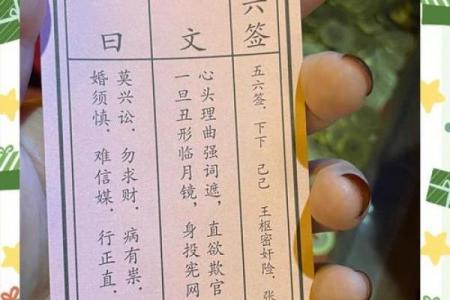 六签
五六签，下下 己己 王枢密奸险，张
文
心头理曲强词遮，直欲欺官
一旦丑形临月镜，身投宪网
曰
莫兴讼，勿求财，病有祟，
婚须慎，难信媒，行正直，